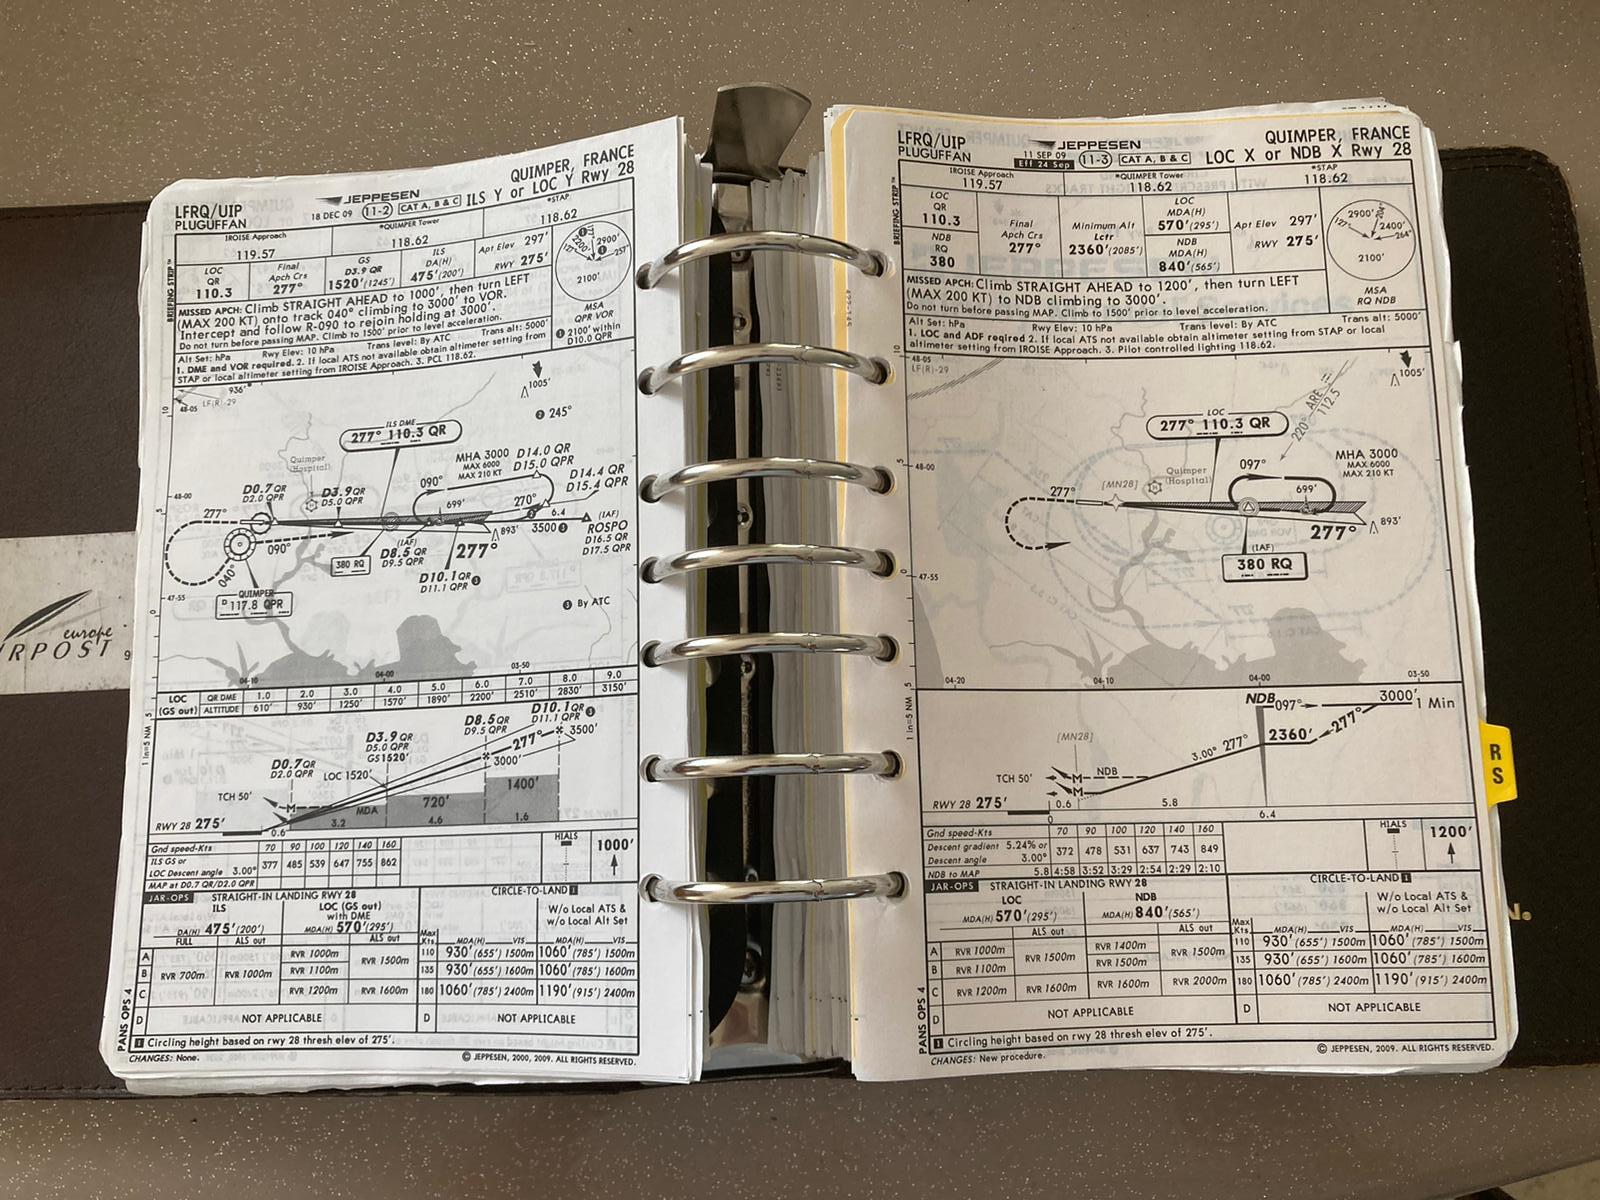 LFRQ/UIP
PLUGUFFAN
JEPPESEN
18 DEC 09 11-2 CAT A, B & C
QUIMPER, FRANCE
ILS Y or LOC Y Rwy 28
BRIEFING STRIP™
IROISE Approach
119.57
*QUIMPER Tower
118.62
*STAP
118.62
LOC
QR
110.3
Final
Apch Crs
277°
GS
D3.9 QR
1520'(1245')
ILS
DA(H)
475'(200')
Apt Elev 297'
RWY 275'
MISSED APCH: Climb STRAIGHT AHEAD to 1000', then turn LEFT
(MAX 200 KT) onto track 040° climbing to 3000' to VOR.
Intercept and follow R-090 to rejoin holding at 3000'.
Do not turn before passing MAP. Climb to 1500' prior to level acceleration.
Alt Set: hPa Rwy Elev: 10 hPa Trans level: By ATC Trans alt: 5000'
1. DME and VOR required. 2. If local ATS not available obtain altimeter setting from
STAP or local altimeter setting from IROISE Approach. 3. PCL 118.62.
127°
2200'
2900'
257°
2100'
MSA
QPR VOR
1 2100' within
D10.0 QPR
936'
LF(R)-29
48-05
1005'
2 245°
ILS DME
277° 110.3 QR
Quimper
(Hospital)
MHA 3000
MAX 6000
MAX 210 KT
D14.0 QR
D15.0 QPR
D14.4 QR
D15.4 QPR
D0.7 QR
D2.0 QPR
D3.9 QR
D5.0 QPR
090°
699'
270°
48-00
277°
6.4
3500 3
893'
(IAF)
ROSPO
D16.5 QR
D17.5 QPR
090°
380 RQ
(IAF)
D8.5 QR
D9.5 QPR
277°
D10.1 QR 3
D11.1 QPR
040°
QUIMPER
D 117.8 QPR
47-55
3 By ATC
04-10
04-00
03-50
1 in=5 NM
LOC
(GS out)
QR DME 1.0 2.0 3.0 4.0 5.0 6.0 7.0 8.0 9.0
ALTITUDE 610' 930' 1250' 1570' 1890' 2200' 2510' 2830' 3150'
D10.1 QR 3
D11.1 QPR
D8.5 QR
D9.5 QPR
D3.9 QR
D5.0 QPR
GS1520'
D0.7 QR
D2.0 QPR
277°
3500'
3000'
LOC 1520'
TCH 50'
M
MDA
720'
1400'
RWY 28 275'
0.6
3.2
4.6
1.6
Gnd speed-Kts 70 90 100 120 140 160
ILS GS or
LOC Descent angle 3.00° 377 485 539 647 755 862
MAP at D0.7 QR/D2.0 QPR
HIALS
1000'
JAR-OPS STRAIGHT-IN LANDING RWY 28
CIRCLE-TO-LAND 1
ILS
DA(H) 475'(200')
LOC (GS out)
with DME
MDA(H) 570'(295')
W/o Local ATS &
w/o Local Alt Set
FULL ALS out
ALS out
Max
Kts MDA(H) VIS MDA(H) VIS
A RVR 1000m 110 930'(655') 1500m 1060'(785') 1500m
B RVR 700m RVR 1000m RVR 1100m RVR 1500m 135 930'(655') 1600m 1060'(785') 1600m
C RVR 1200m RVR 1600m 180 1060'(785') 2400m 1190'(915') 2400m
D NOT APPLICABLE D NOT APPLICABLE
PANS OPS 4
1 Circling height based on rwy 28 thresh elev of 275'.
CHANGES: None.
© JEPPESEN, 2000, 2009. ALL RIGHTS RESERVED.
LFRQ/UIP
PLUGUFFAN
JEPPESEN
11 SEP 09
Eff 24 Sep
11-3 CAT A, B & C
QUIMPER, FRANCE
LOC X or NDB X Rwy 28
BRIEFING STRIP™
IROISE Approach
119.57
*QUIMPER Tower
118.62
*STAP
118.62
LOC
QR
110.3
NDB
RQ
380
Final
Apch Crs
277°
Minimum Alt
Lctr
2360'(2085')
LOC
MDA(H)
570'(295')
NDB
MDA(H)
840'(565')
Apt Elev 297'
RWY 275'
MISSED APCH: Climb STRAIGHT AHEAD to 1200', then turn LEFT
(MAX 200 KT) to NDB climbing to 3000'.
Do not turn before passing MAP. Climb to 1500' prior to level acceleration.
Alt Set: hPa Rwy Elev: 10 hPa Trans level: By ATC Trans alt: 5000'
1. LOC and ADF reqired 2. If local ATS not available obtain altimeter setting from STAP or local
altimeter setting from IROISE Approach. 3. Pilot controlled lighting 118.62.
2900'
204°
2400'
127°
264°
2100'
MSA
RQ NDB
48-05
LF(R)-29
1005'
ARE
112.5
220°
LOC
277° 110.3 QR
MHA 3000
MAX 6000
MAX 210 KT
48-00
Quimper
(Hospital)
097°
[MN28]
277°
699'
277°
893'
(IAF)
380 RQ
47-55
04-20
04-10
04-00
03-50
1 in=5 NM
NDB
097°
3000'
1 Min
277°
2360'
[MN28]
3.00° 277°
TCH 50'
M
NDB
M
RWY 28 275'
0.6
5.8
0
6.4
Gnd speed-Kts 70 90 100 120 140 160
Descent gradient 5.24% or
Descent angle 3.00° 372 478 531 637 743 849
NDB to MAP 5.8 4:58 3:52 3:29 2:54 2:29 2:10
HIALS
1200'
JAR-OPS STRAIGHT-IN LANDING RWY 28
CIRCLE-TO-LAND 1
LOC
MDA(H) 570'(295')
NDB
MDA(H) 840'(565')
W/o Local ATS &
w/o Local Alt Set
ALS out
ALS out
Max
Kts MDA(H) VIS MDA(H) VIS
A RVR 1000m RVR 1500m RVR 1400m RVR 1500m 110 930'(655') 1500m 1060'(785') 1500m
B RVR 1100m RVR 1500m 135 930'(655') 1600m 1060'(785') 1600m
C RVR 1200m RVR 1600m RVR 1600m RVR 2000m 180 1060'(785') 2400m 1190'(915') 2400m
D NOT APPLICABLE D NOT APPLICABLE
PANS OPS 4
1 Circling height based on rwy 28 thresh elev of 275'.
CHANGES: New procedure.
© JEPPESEN, 2009. ALL RIGHTS RESERVED.
R
S
europe
RPOST
9
N.